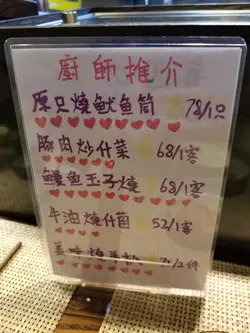 廚師推介
原只燒魷魚筒 78/1只
豚肉炒什菜 68/1客
鰻魚玉子燒 68/1客
牛油燒什菌 52/1客
美味燒 /2件